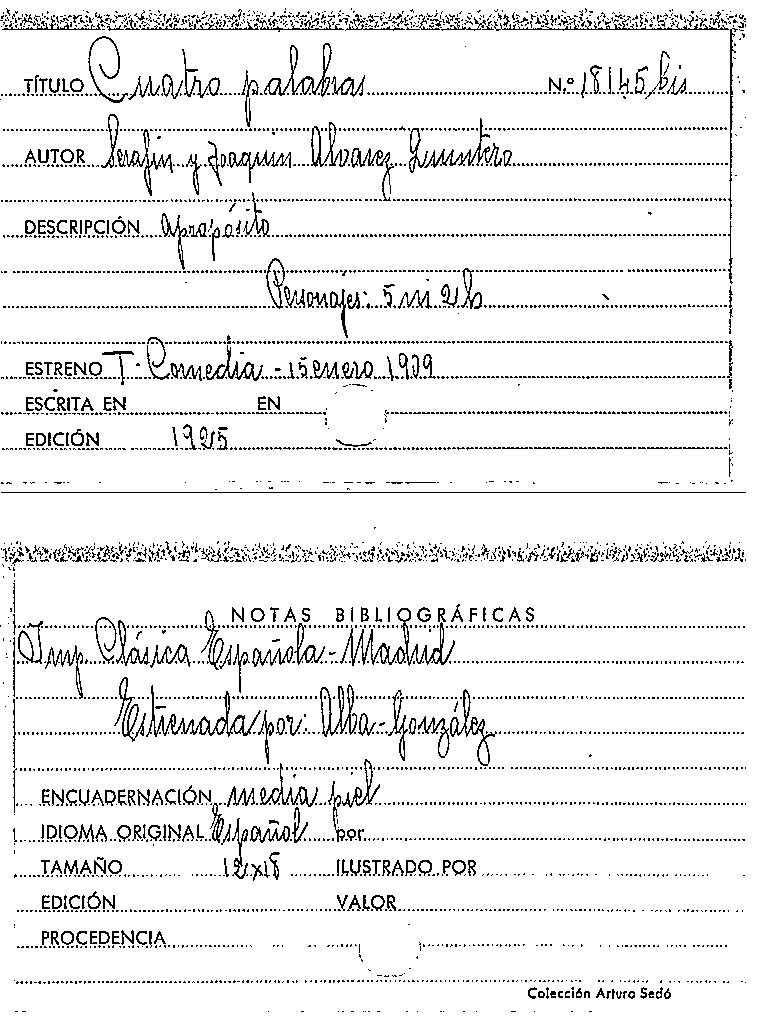 TÍTULO Cuatro palabras N.º 18145 bis
AUTOR Serafin y Joaquin Alvarez Quintero
DESCRIPCIÓN apropósito
Personajes: 5 m 2 h
ESTRENO T. Comedia - 15 enero 1909
ESCRITA EN EN
EDICIÓN 1925
NOTAS BIBLIOGRÁFICAS
Imp Clásica Española - Madrid
Estrenada por: Alba - González
ENCUADERNACIÓN media piel
IDIOMA ORIGINAL Español por
TAMAÑO 12x18 ILUSTRADO POR
EDICIÓN VALOR
PROCEDENCIA
Colección Arturo Sedó